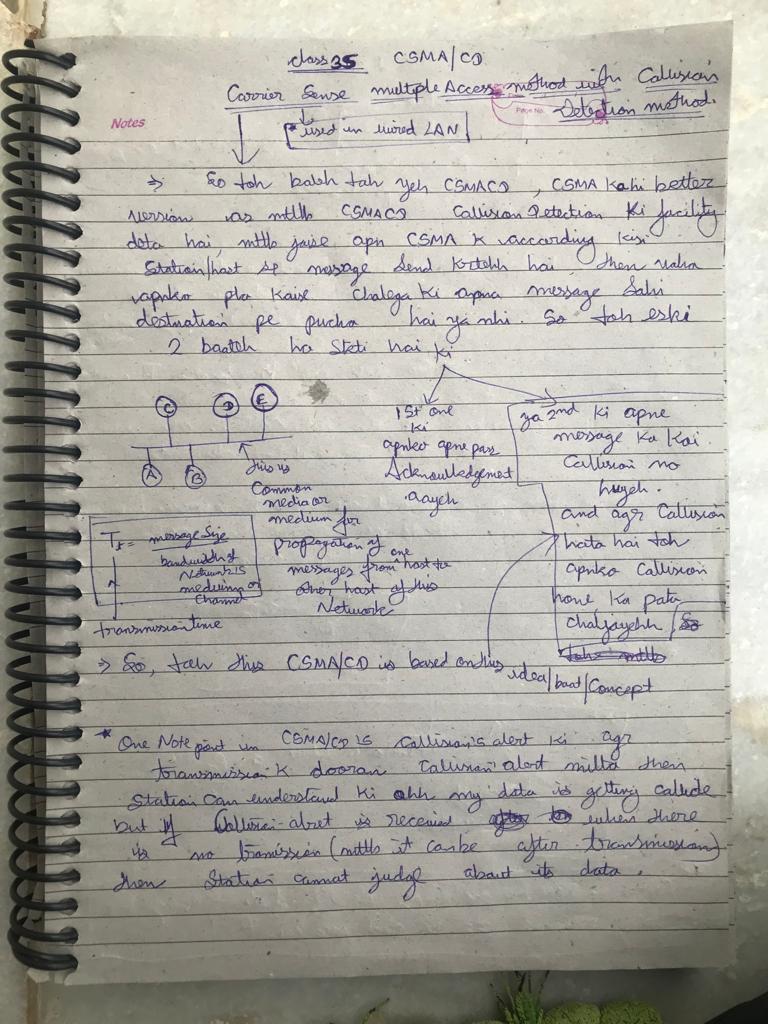 class 35 CSMA/CD
Carrier Sense multiple Access method with Callision
Detection method.
Page No.
Notes
* used in wired LAN
⇒ So toh bateh tah yeh CSMACD, CSMA ka hi better
version as mtlb CSMACD Callision Detection ki facility
deta hai, mtlb jaise apn CSMA K according kisi
Station/host se message Send krtehh hai, then
apnko pta kaise chalega ki apna message Sahi
destnation pe pucha hai ya nhi. So toh eski
2 baateh ho Skti hai ki
1st one
ki
apnko apne pass
Acknowledgement
aayeh
ya 2nd ki apne
message ka koi
Callision no
huyeh.
and agr Callision
hota hai toh
apnko Callision
hone ka pata
chaljayehh So
toh mtlb
C D E
A B
this is
Common
media or
medium for
propagation of one
messages from host to
other host of this
Network
Tt = message Size
bandwidth of
Network is
medium or
Channel
transmission time
⇒ So, toh this CSMA/CD is based on this idea/baat/Concept
* One Note point in CSMA/CD is Callision's alert ki agr
transmission K dooran Callision alert milta then
Station can understand ki ohh my data is getting callide
but if Callision abret is received when there
is no tranission (mtlb it can be after transmission)
then Station cannot judge about its data.